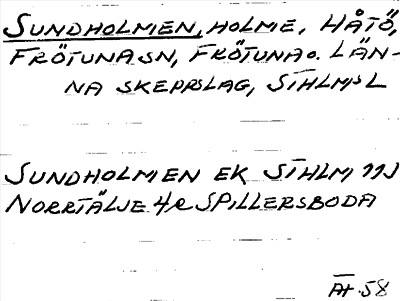 SUNDHOLMEN, HOLME, HÅTÖ,
FRÖTUNA SN, FRÖTUNA O. LÄN-
NA SKEPPSLAG, STHLMS L
SUNDHOLMEN EK STHLM 11J
NORRTÄLJE 4 e SPILLERSBODA
At. 58